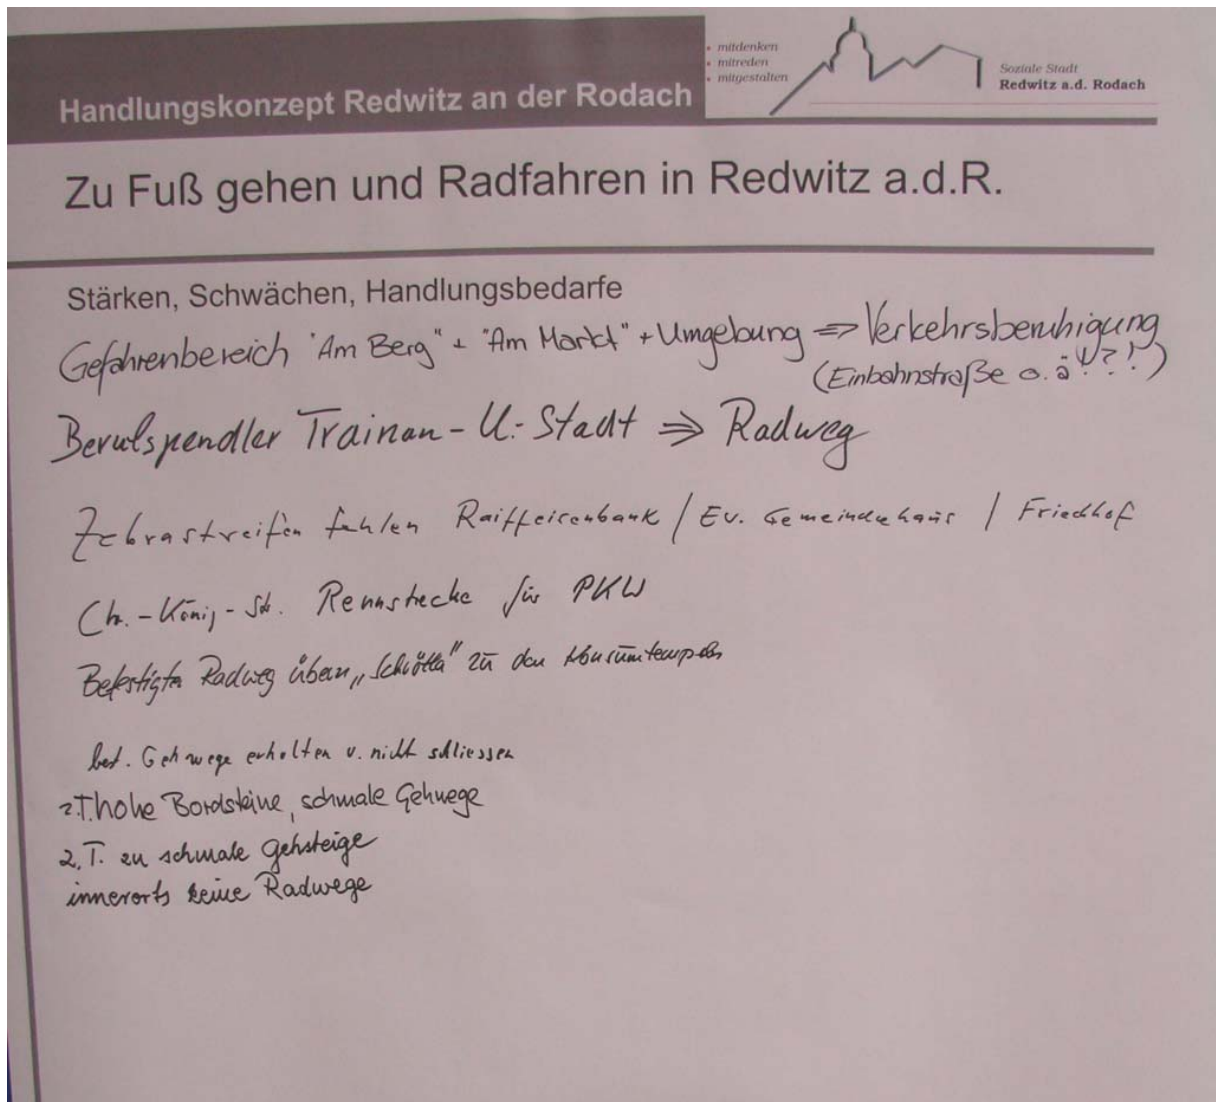 • mitdenken
• mitreden
• mitgestalten
Soziale Stadt
Redwitz a.d. Rodach
Handlungskonzept Redwitz an der Rodach
Zu Fuß gehen und Radfahren in Redwitz a.d.R.
Stärken, Schwächen, Handlungsbedarfe
Gefahrenbereich "Am Berg" + "Am Markt" + Umgebung => Verkehrsberuhigung
(Einbahnstraße o.ä!?!)
Berufspendler Trainau - U.-Stadt => Radweg
Zebrastreifen fehlen Raiffeisenbank / Ev. Gemeindehaus / Friedhof
Ch.-König-Str. Rennstrecke für PKW
Befestigter Radweg übern zu den Konsumtempeln
best. Gehwege erhalten u. nicht schliessen
z.T. hohe Bordsteine, schmale Gehwege
z.T. zu schmale Gehsteige
innerorts keine Radwege